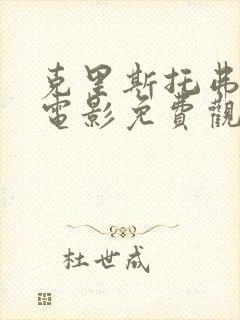 克里斯托弗
電影免費觀
杜世成